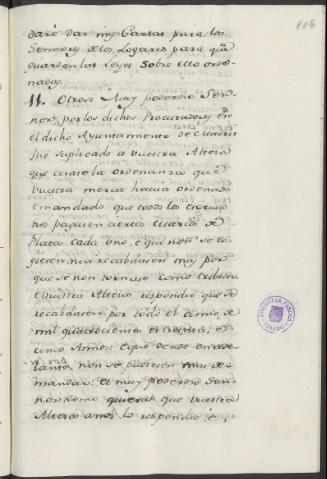 106
daré dar mis Cartas para los
Señores de los Logares para que
guarden las Leyes sobre ello orde-
nadas.
11. Otrosi Muy poderoso Señ-
nor, por los dichos Procuradores en
el dicho Ayuntamiento de Madrit
fue suplicado a vuestra Alteza
que quasase la ordenanza que
vuestra merced havia ordenado
e mandado que todos los
no paguen cierto Marco de
Plata cada uno, é que non se co-
giesen nin recabdasen mas por
que se non tornase como tributo
e vuestra Alteza respondio que se
recabdasen por todo el anno, de
mil quatrocientos e treinta, e
cinco Annos: e que dende en ade-
lante non se pudiesen mas de-
mandar: e muy poderoso Sen-
nor como quiera que vuestra
Alteza ansi lo respondio é,
BIBLIOTECA PUBLICA
TOLEDO